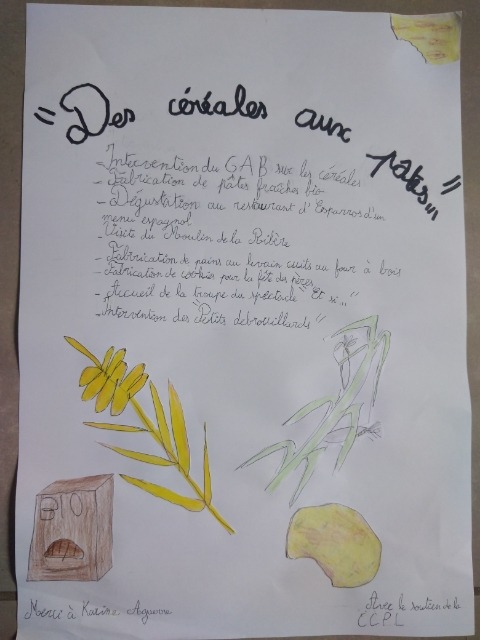 "Des céréales aux pâtes"
- Intervention du GAB sur les céréales
- Fabrication de pâtes fraîches bio
- Dégustation au restaurant d'Esparros d'un
menu espagnol
- Visite du Moulin de la Ribère
- Fabrication de pains au levain cuits au four à bois
- Fabrication de cookies pour la fête des pères
- Accueil de la troupe du spectacle "Et si..."
- Intervention des "Petits débrouillards"
BIO
Merci à Karine Aguerre
Avec le soutien de la
CCPL